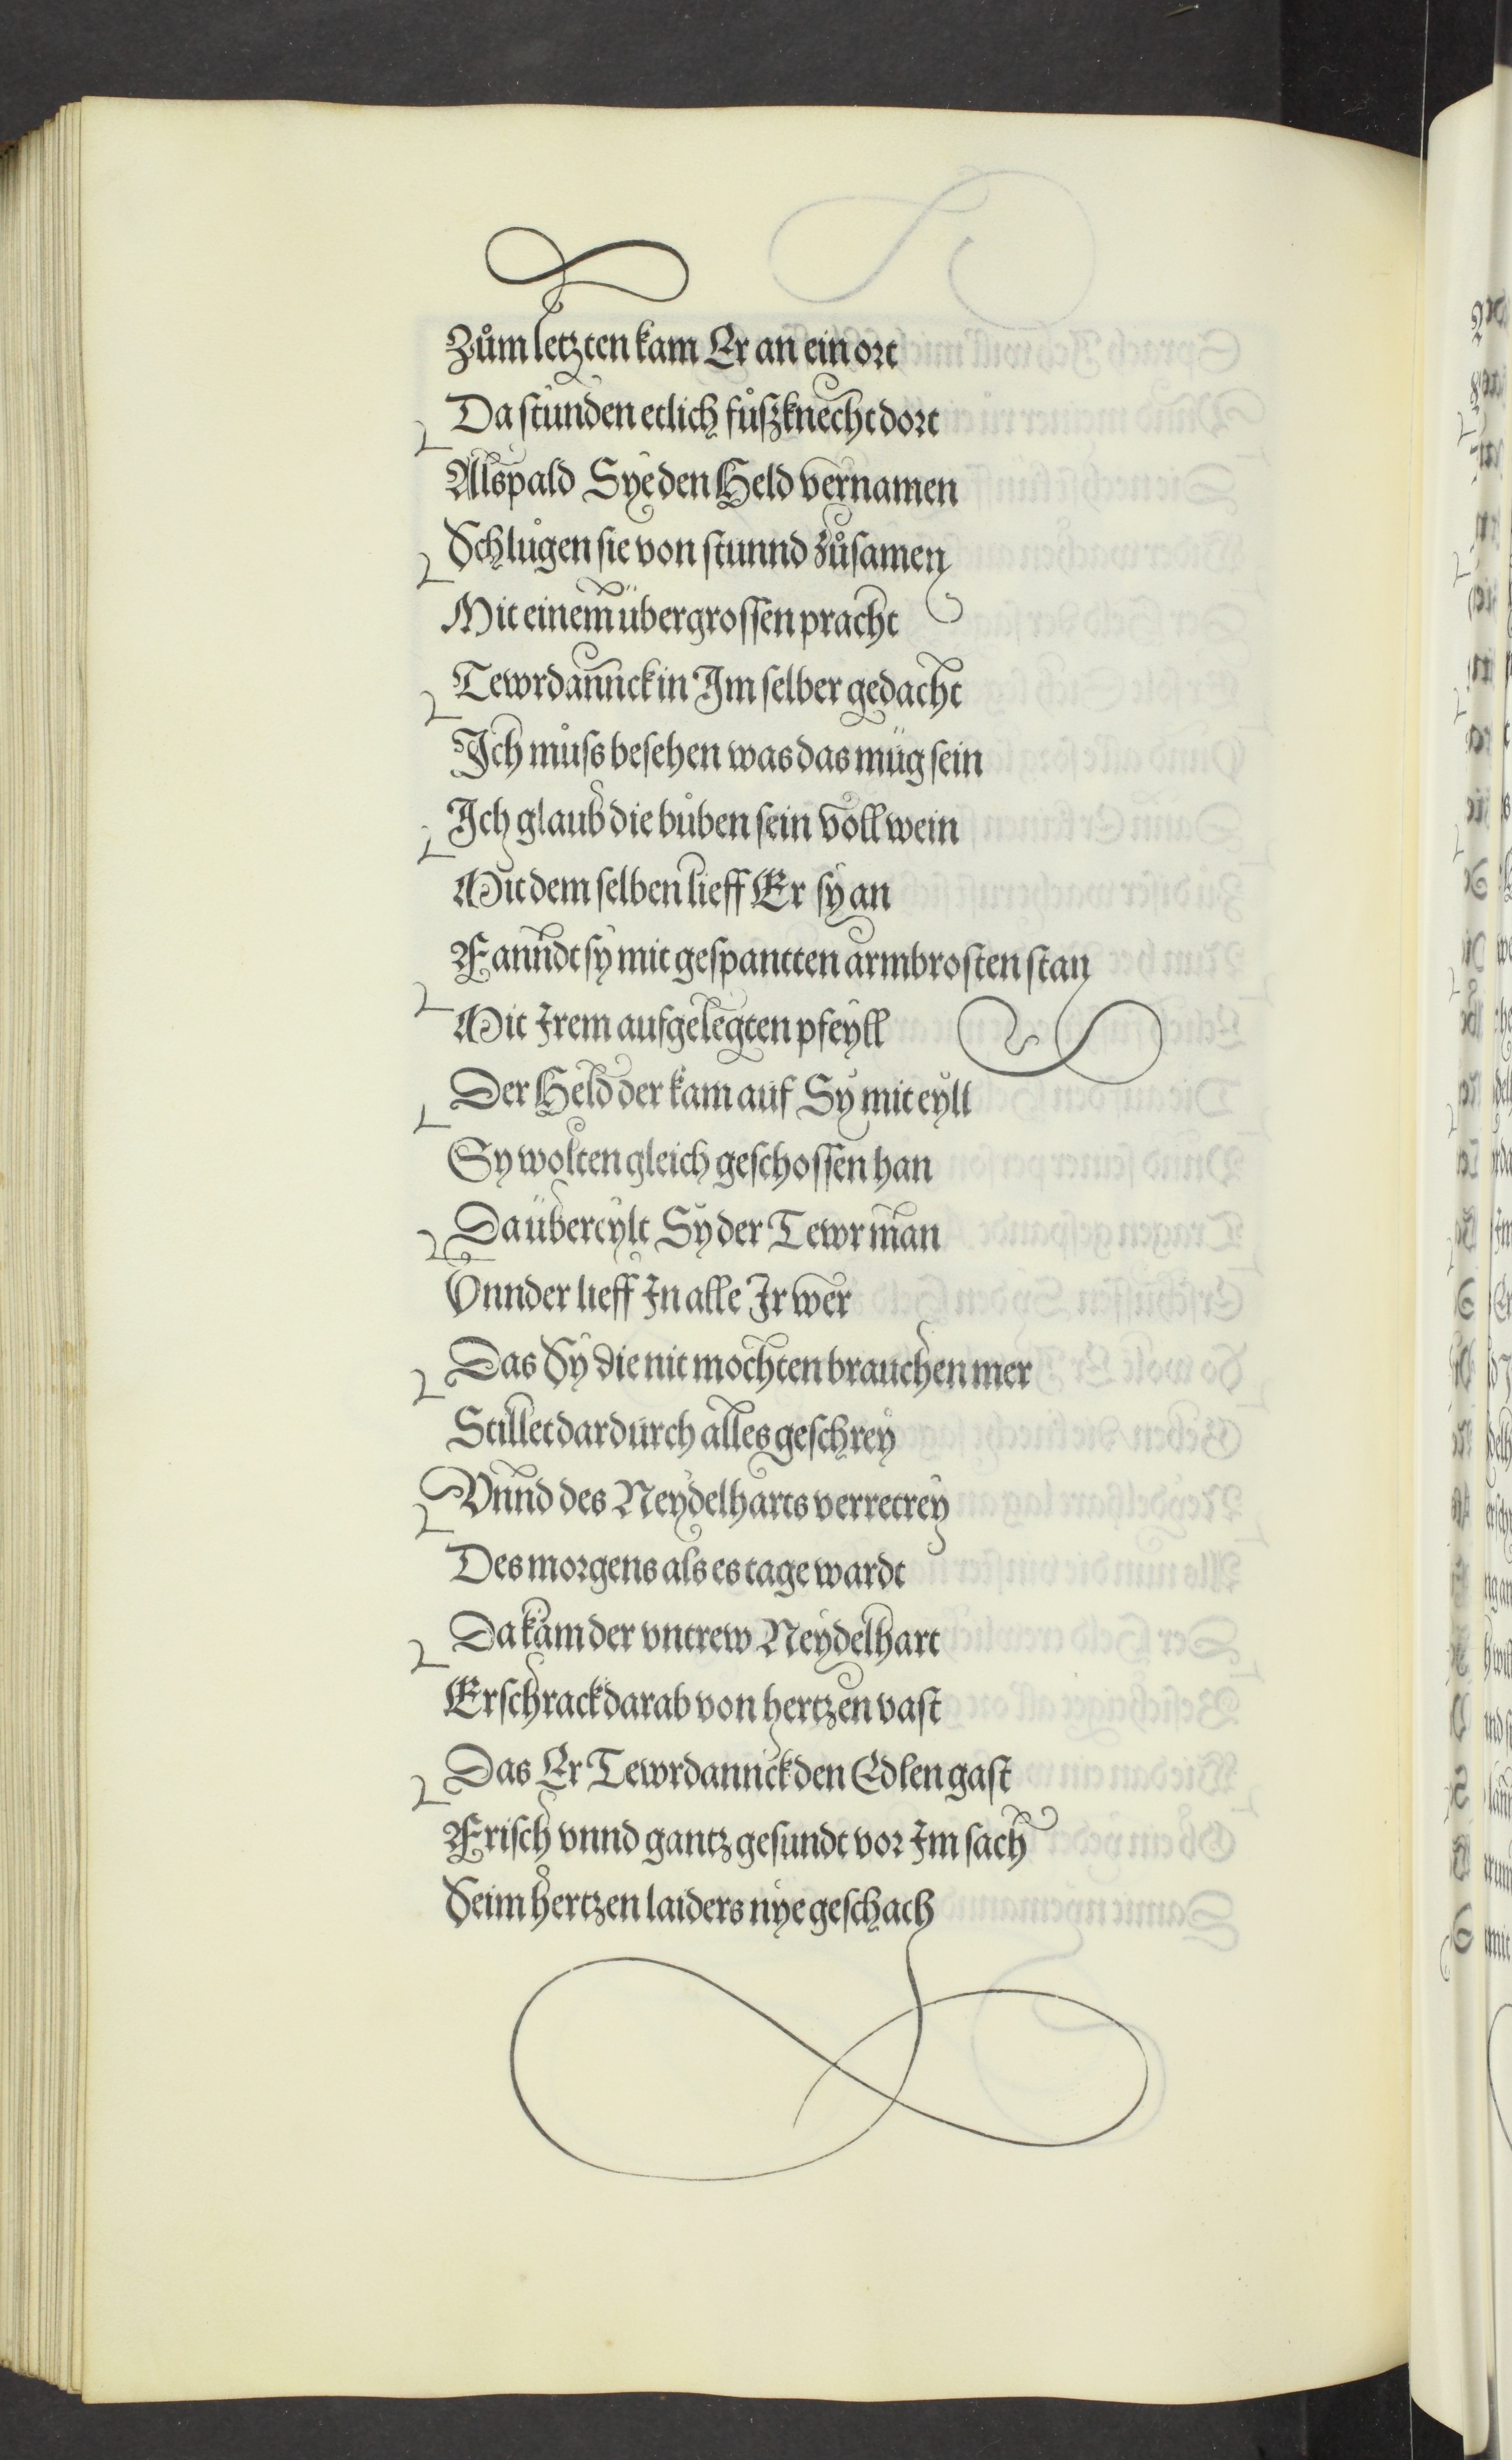 Zům letzten kam Er an ein ort
Da stůnden etlich fůßknecht dort
Alspald Sye den Held vernamen
Schlůgen sie von stunnd zůsamen
Mit einem übergrossen pracht
Tewrdannck in Im selber gedacht
Ich můss besehen was das müg sein
Ich glaub die bůben sein voll wein
Mit dem selben lieff Er sy an
Fanndt sy mit gespantten armbrosten stan
Mit Irem aufgelegten pfeyll
Der Held der kam auf Sy mit eyll
Sy wolten gleich geschossen han
Da übereylt Sy der Tewr man
Vnnder lieff In alle Ir wer
Das Sy die nit mochten brauchen mer
Stillet dardurch alles geschrey
Vnnd des Neydelharts verretrey
Des morgens als es tage wardt
Da kam der vntrew Neydelhart
Erschrack darab von hertzen vast
Das Er Tewrdannck den Edlen gast
Frisch vnnd gantz gesundt vor Im sach
Seim hertzen laiders nye geschach